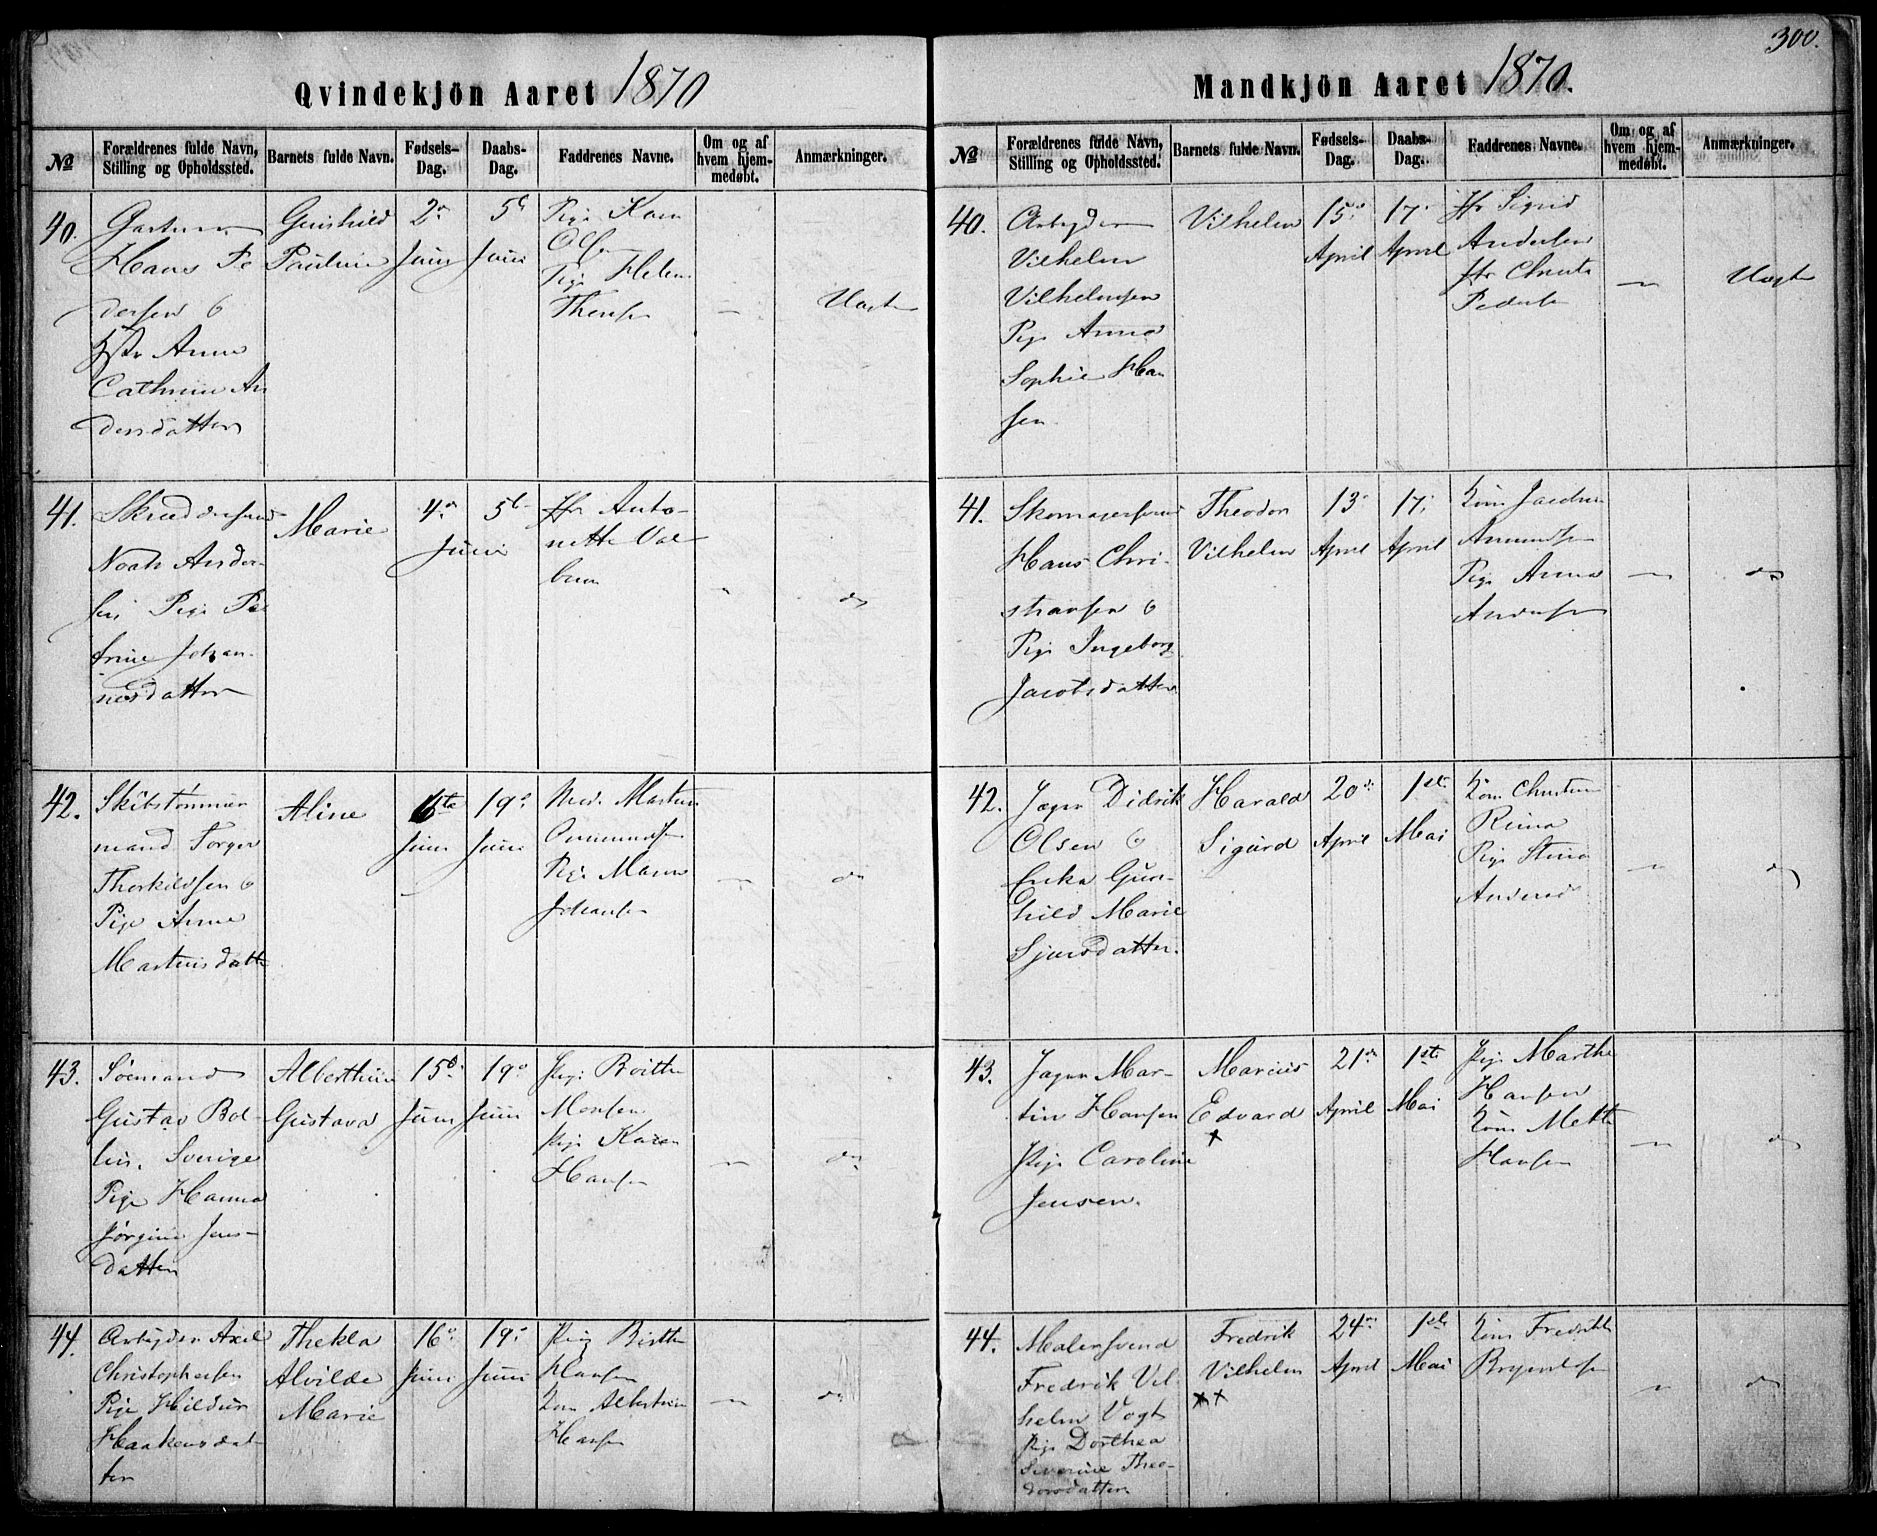 300.
Qvindekjön Aaret 1870
№
Forældrenes fulde Navn, Stilling og Opholdssted.
Barnets fulde Navn.
Fødsels-Dag.
Daabs-Dag.
Faddrenes Navne.
Om og af hvem hjem-medøbt.
Anmærkninger.
40.
Hans Pe
dersen &
Anne
Cathrine An
dersdatter
Gunhild
Pauline
2
Juni
5
Juni
Pige Karen
Olsen
Pige Helene
41.
Noah Ander-
sen Pige Pe
trine Johan-
nesdatter
Marie
4
5
Juni
Anto-
nette
do
42.
Skibstømmer
mand Torger
Thorkildsen &
Pige Anne
Martinsdatter
Aline
Juni
19
Juni
Johansen
do
43.
Sømand
Gustav Bol-
lin, Sverige
Pige Hanna
Jørgine Jens-
datter
Alberthine
Gustava
15
Juni
19
Juni
Pige Britte
Monsen
Pige Karen
Hansen
do
44.
Arbeider Axel
Christophersen
Pige Hildur
Haakensdat-
ter
Thekla
Alvilde
Marie
16
Juni
19
Juni
Hansen
Kone Albertine
Hansen
do
Mandkjön Aaret 1870.
№
Forældrenes fulde Navn, Stilling og Opholdssted.
Barnets fulde Navn.
Fødsels-Dag.
Daabs-Dag.
Faddrenes Navne.
Om og af hvem hjem-medøbt.
Anmærkninger.
40.
Arbeider
Vilhelm
Vilhelmsen
Pige Anna
Sophie Han
sen
Vilhelm
15
April
17
April
Sigrid
Andersen
Pedersen
Uægte
41.
Skomagersvend
Hans Chri-
stiansen &
Pige Ingeborg
Jacobsdatter
Theodor
Vilhelm
13
April
17
April
Amundsen
Pige Anna
Andersen
do
42.
Jæger Didrik
Olsen &
Erika Gun-
hild Marie
Sjursdatter.
Harald
Sigurd
20
April
1ste
Mai
Pige Stina
do
43.
Jæger Mar-
tin Hansen
Pige Caroline
Jensen.
Marius
Edvard
21
April
1ste
Mai
Pige Marthe
Hansen
Kone Mette
Hansen
do
44.
Malersvend
Fredrik Vil
helm Vogt
Pige Dorthea
Severine Theo-
dorsdatter
Fredrik
Vilhelm
24
April
1ste
Mai
do